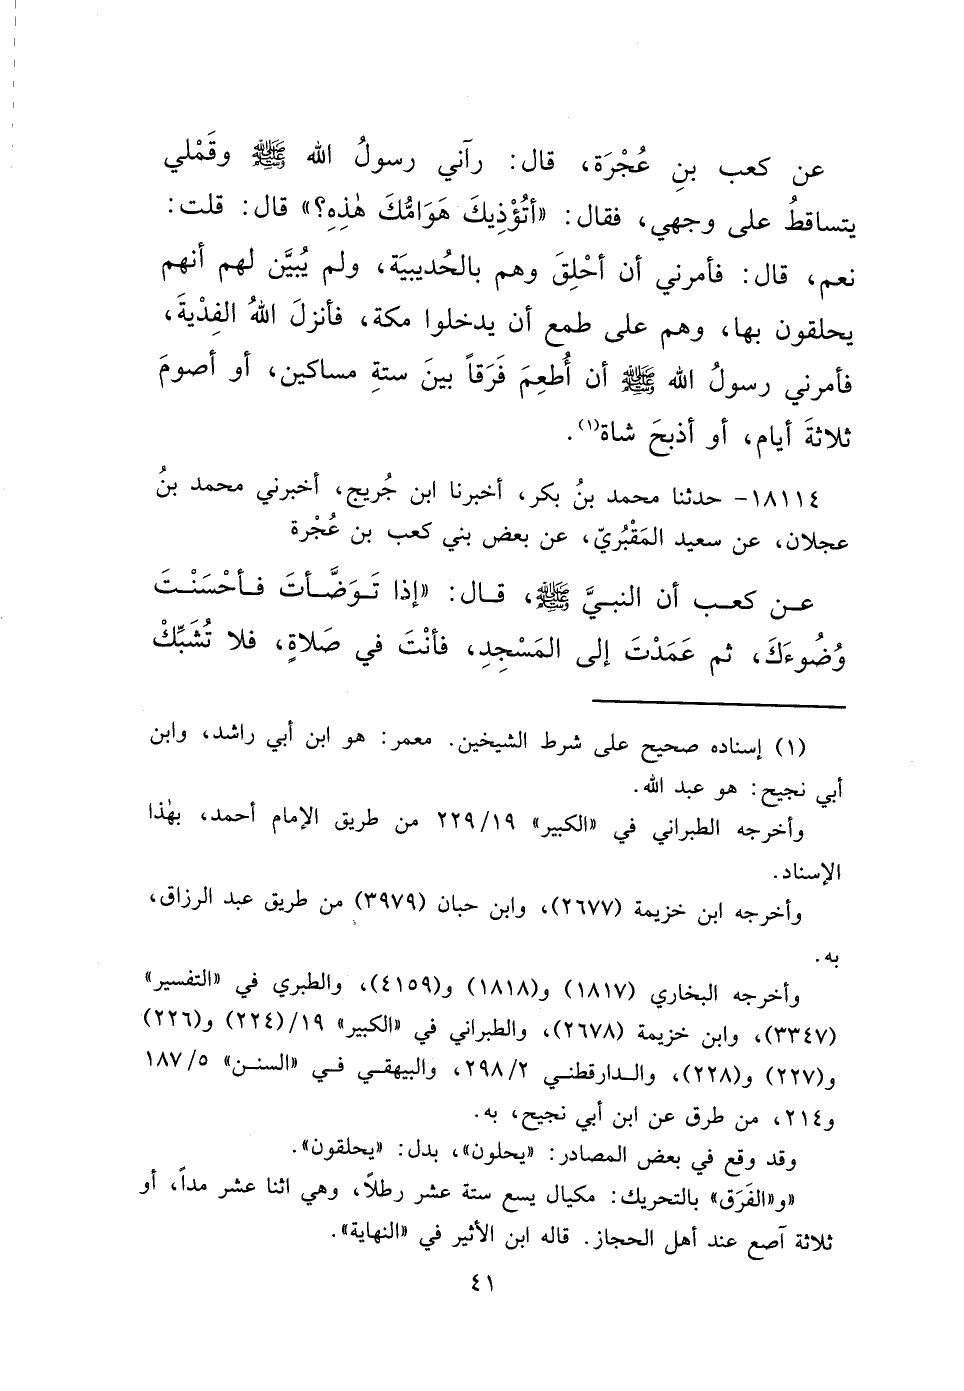 عن كعب بنِ عُجْرَة، قال: رآني رسولُ الله ﷺ وقَمْلي
يتساقطُ على وجهي، فقال: «أتُؤْذِيكَ هَوَامُّكَ هٰذِهِ؟» قال: قلت:
نعم، قال: فأمرني أن أحْلِقَ وهم بالحُديبيَة، ولم يُبيَّن لهم أنهم
يحلقون بها، وهم على طمع أن يدخلوا مكة، فأنزلَ اللهُ الفِدْيةَ،
فأمرني رسولُ الله ﷺ أن أُطعِمَ فَرَقاً بينَ ستةِ مساكين، أو أصومَ
ثلاثةَ أيام، أو أذبحَ شاة(١).
١٨١١٤- حدثنا محمد بنُ بكر، أخبرنا ابن جُريج، أخبرني محمد بنُ
عجلان، عن سعيد المَقْبُريّ، عن بعض بني كعب بن عُجْرة
عـن كعـب أن النبـيَّ ﷺ، قـال: «إذا تَـوَضَّـأتَ فـأحْسَنْـتَ
وُضُوءَكَ، ثم عَمَدْتَ إلى المَسْجِدِ، فأنْتَ في صَلاةٍ، فلا تُشَبِّكْ
(١) إسناده صحيح على شرط الشيخين. معمر: هو ابن أبي راشد، وابن
أبي نجيح: هو عبد الله.
وأخرجه الطبراني في «الكبير» ٢٢٩/١٩ من طريق الإمام أحمد، بهٰذا
الإسناد.
وأخرجه ابن خزيمة (٢٦٧٧)، وابن حبان (٣٩٧٩) من طريق عبد الرزاق،
به.
وأخرجه البخاري (١٨١٧) و(١٨١٨) و(٤١٥٩)، والطبري في «التفسير»
(٣٣٤٧)، وابن خزيمة (٢٦٧٨)، والطبراني في «الكبير» ١٩/(٢٢٤) و(٢٢٦)
و(٢٢٧) و(٢٢٨)، والـدارقطنـي ٢٩٨/٢، والبيهقـي فـي «السنـن» ١٨٧/٥
و٢١٤، من طرق عن ابن أبي نجيح، به.
وقد وقع في بعض المصادر: «يحلون»، بدل: «يحلقون».
«و«الفَرَق» بالتحريك: مكيال يسع ستة عشر رطلاً، وهي اثنا عشر مداً، أو
ثلاثة آصع عند أهل الحجاز. قاله ابن الأثير في «النهاية».
٤١